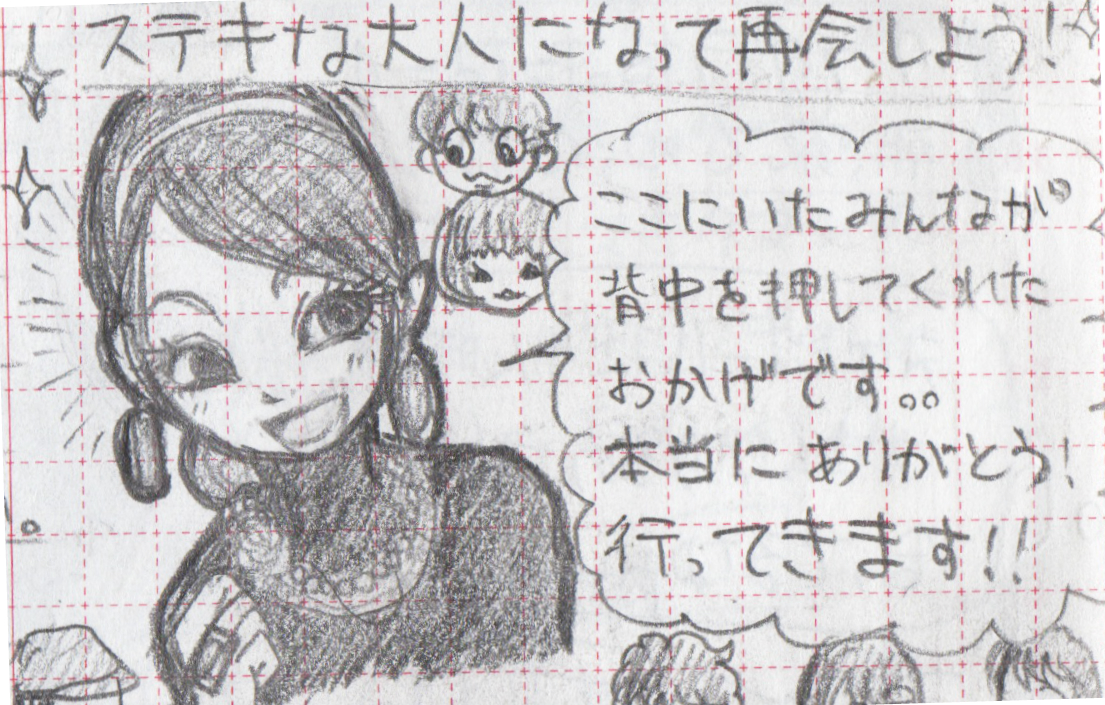 ステキな大人になって再会しよう!
ここにいたみんなが
背中を押してくれた
おかげです。。
本当にありがとう!
行ってきます!!